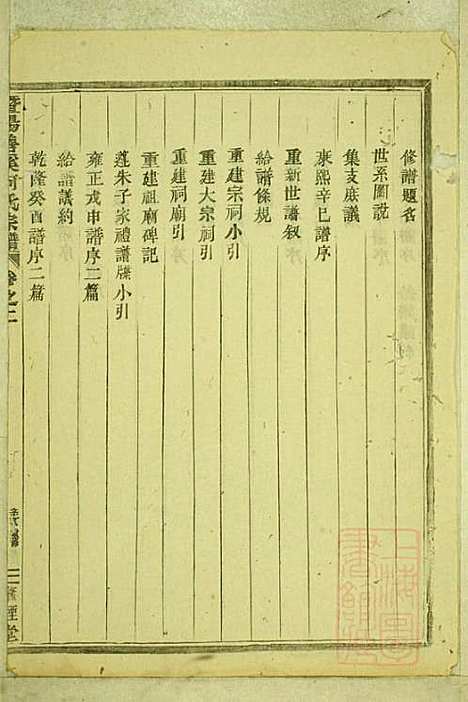 修譜題名
世系圖說
集支庶議
康熙辛巳譜序
重新世譜叙
給譜條規
重建宗祠小引
重建大宗祠引
重建祠廟引
重建祖廟碑記
遵朱子家禮譜牒小引
雍正戊申譜序二篇
給譜議約
乾隆癸酉譜序二篇
暨陽 何氏宗譜 卷之二